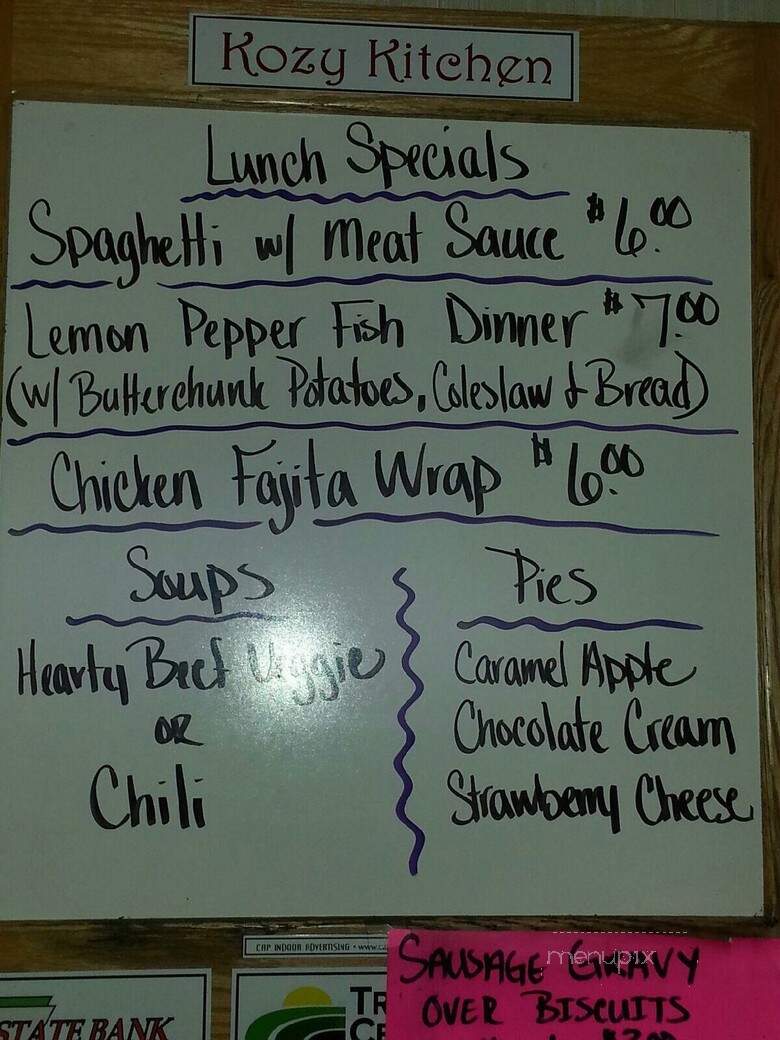 Kozy Kitchen
Lunch Specials
Spaghetti w/ Meat Sauce $6.00
Lemon Pepper Fish Dinner $7.00
(w/ Butterchunk Potatoes, Coleslaw & Bread)
Chicken Fajita Wrap $6.00
Soups
Hearty Beef Veggie
OR
Chili
Pies
Caramel Apple
Chocolate Cream
Strawberry Cheese
CAP INDOOR ADVERTISING • www.
menupix
SAUSAGE GRAVY
OVER BISCUITS
STATE BANK
TR